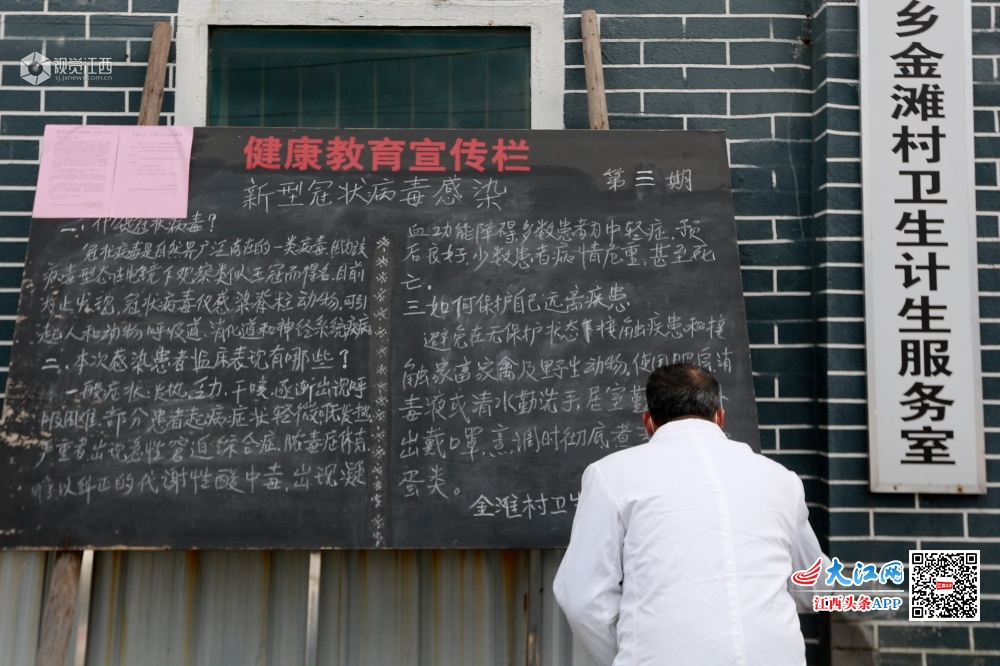 视觉江西
sj.jxnews.com.cn
健康教育宣传栏
新型冠状病毒感染
第三期
一.什么是冠状病毒?
冠状病毒是自然界广泛存在的一类病毒,因
病毒型态在电镜下观察类似王冠而得名,目前
为止发现,冠状病毒仅感染脊柱动物,可引
起人和动物呼吸道,消化道和神经系统疾病
二.本次感染患者临床表现有哪些?
一般症状:发热,乏力,干咳,逐渐出现呼
吸困难,部分患者起病症状轻微,低发热
严重者出现急性窘迫综合症,脓毒症休克,
难以纠正的代谢性酸中毒,出现凝
血功能障碍多数患者为中轻症,预
后良好,少数患者病情危重,甚至死
亡.
三.如何保护自己远离疾患
避免在无保护状态下接触疾患和接
触家畜家禽及野生动物,使用肥皂消
毒液或清水勤洗手,居室
出戴口罩,烹调时彻底煮
蛋类。
金滩村卫生
乡金滩村卫生计生服务室
大江网
江西头条APP